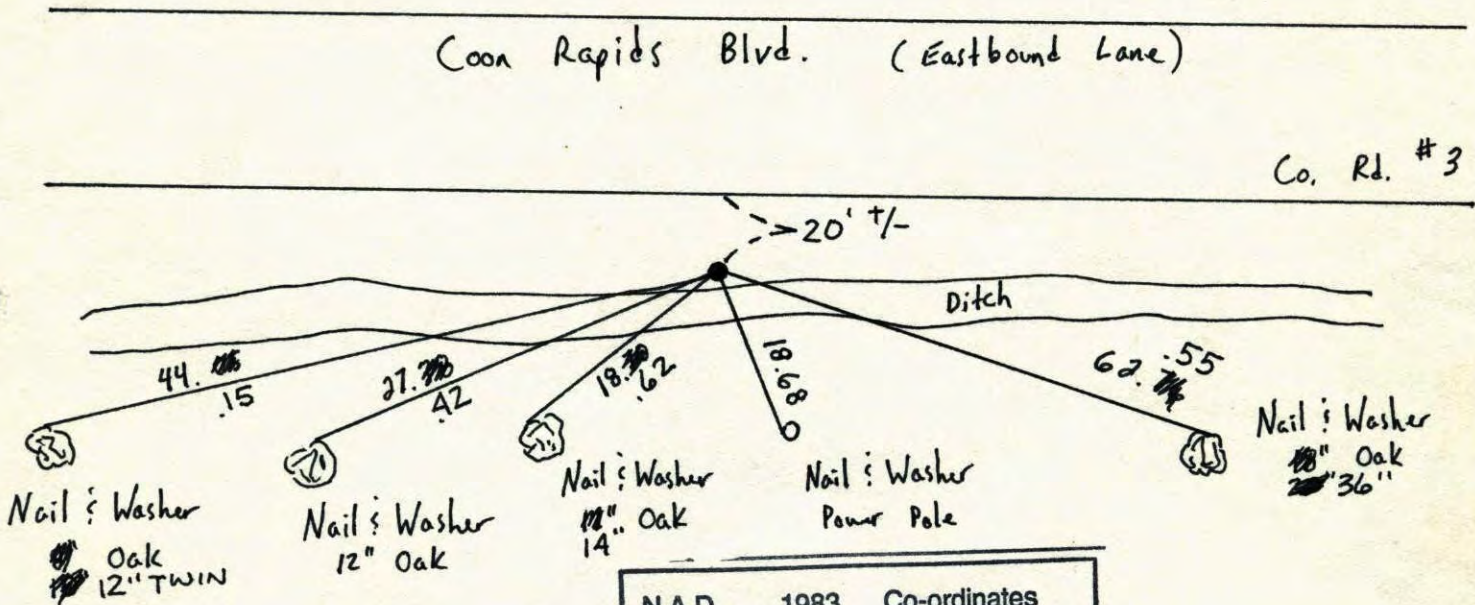 Coon Rapids Blvd. (Eastbound Lane)
Co. Rd. #3
20' +/-
Ditch
44.
.15
27.
.42
18.
.62
18.68
62. .55
Nail & Washer
Oak
12" TWIN
Nail & Washer
12" Oak
Nail & Washer
Oak
14"
Nail & Washer
Power Pole
Nail & Washer
" Oak
"36"
N.A.D. 1983 Co-ordinates